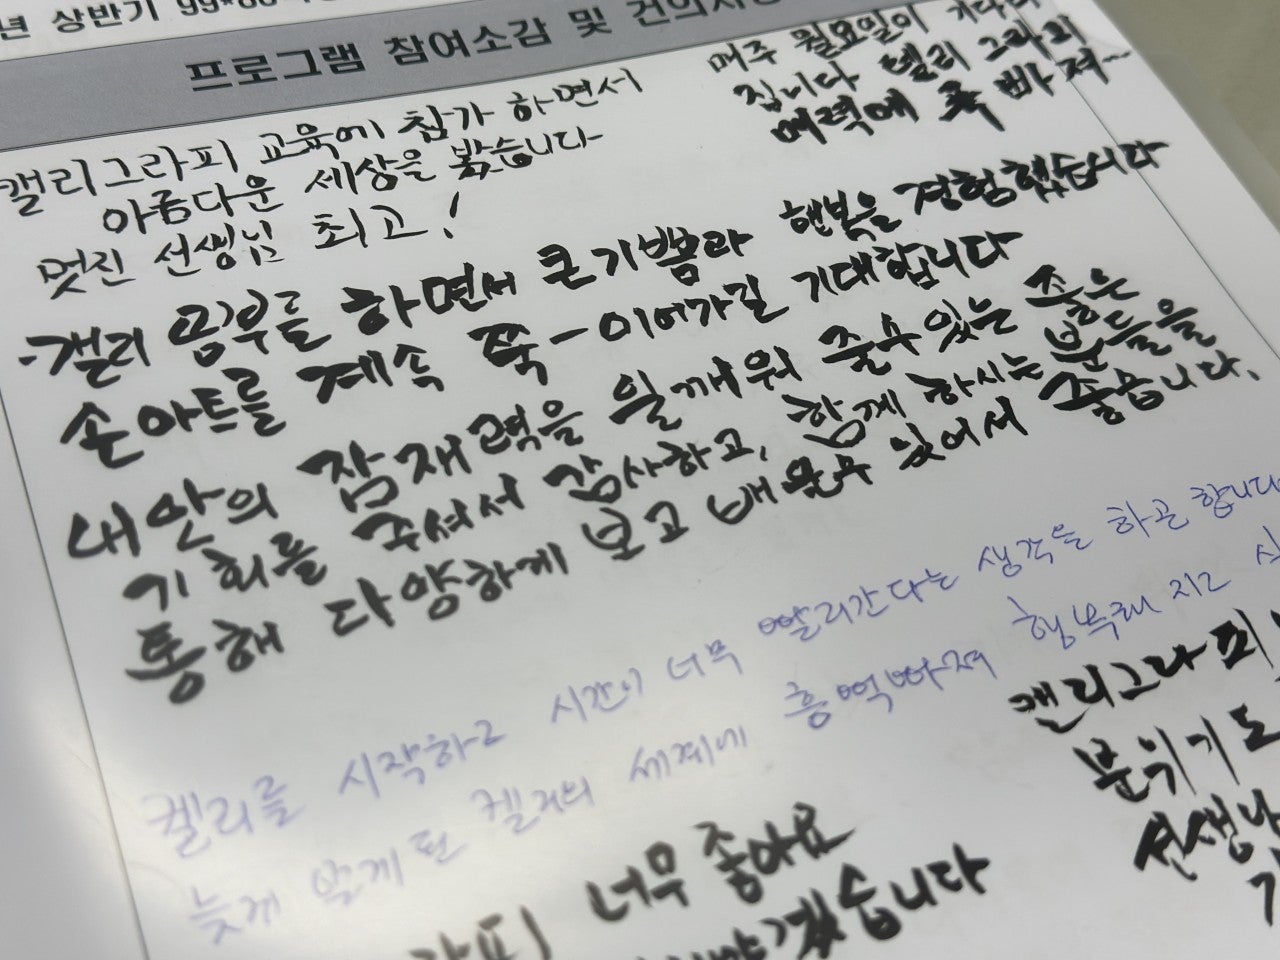 년 상반기
프로그램 참여소감 및 건의사
매주 월요일이 기다려
집니다 캘리그라피
매력에 푹 빠져~
캘리그라피 교육에 참가 하면서
아름다운 세상을 봤습니다
멋진 선생님 최고!
-캘리 공부를 하면서 큰 기쁨과 행복을 경험했습니다
손아트를 계속 쭉- 이어가길 기대합니다
내 안의 잠재력을 일깨워 줄수 있는 좋은
기회를 주셔서 감사하고, 함께 하시는 분들을
통해 다양하게 보고 배울수 있어서 좋습니다.
켈리를 시작하고 시간이 너무 빨리간다는 생각을 하곤 합니다
늦게 알게된 켈리의 세계에 흠뻑빠져 행복해 지고
캘리그라피
분위기도
선생님
라피 너무 좋아요
겠습니다